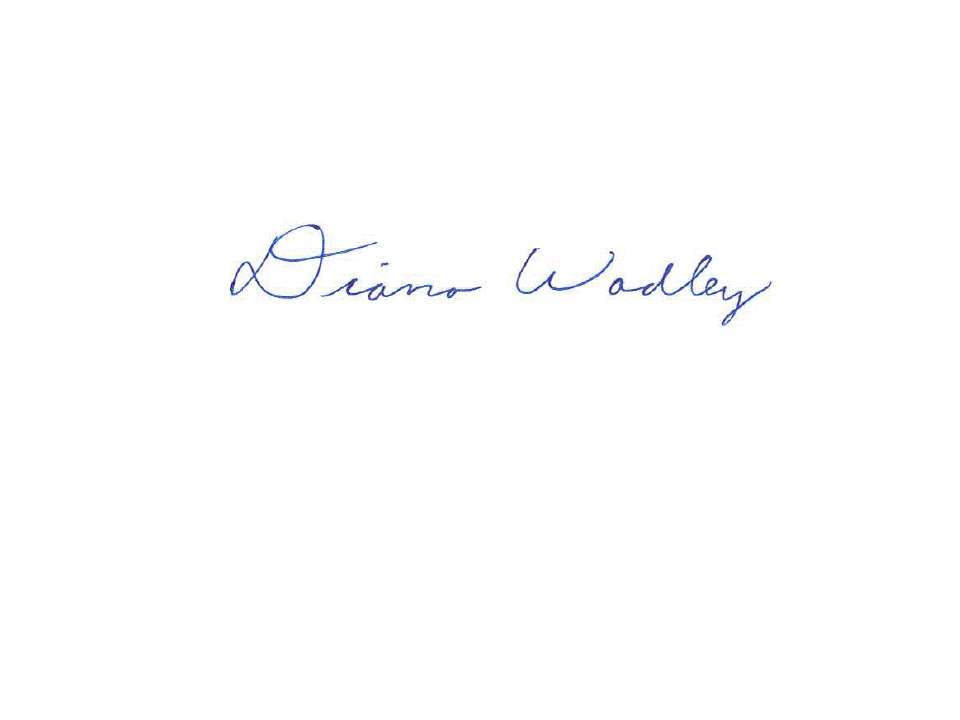 Diana Wadley